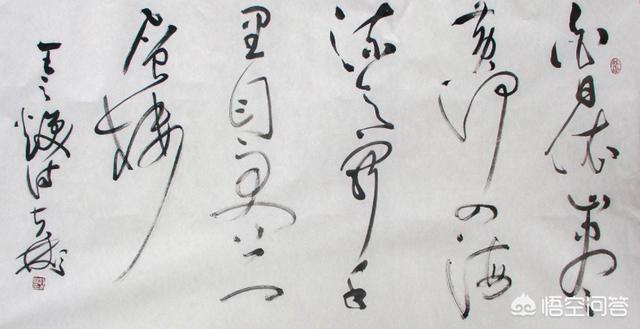 白日依山尽
黄河入海
流欲穷千
里目更上一
层楼
王之诗
悟空问答